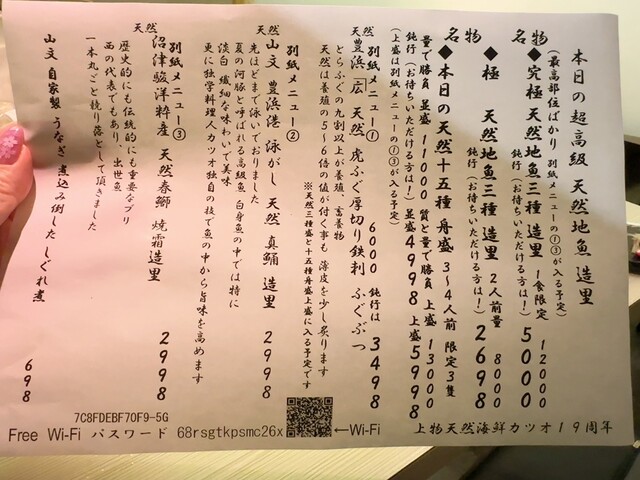 本日の超高級 天然地魚 造里
(最高部位ばかり 別紙メニューの①③が入る予定)
名物
◆究極 天然地魚三種 造里 1食限定 12000
鈍行(お待ちいただける方は!) 5000
◆極 天然地魚三種 造里 2人前量 8000
鈍行(お待ちいただける方は!) 2698
名物
◆本日の天然十五種 舟盛 3~4人前 限定3隻
量で勝負 並盛 11000 質と量で勝負 上盛 13000
鈍行(お待ちいただける方は!) 並盛 4998 上盛 5998
(上盛は別紙メニューの①③が入る予定)
別紙メニュー① 6000 鈍行は 3498
天然 豊浜「広」 天然 虎ふぐ厚切り鉄刺 ふぐぶつ
とらふぐの九割以上が養殖、畜養物
天然は養殖の5~6倍の値が付く事も 薄皮を少し炙ります
※天然三種盛と十五種舟盛上盛に入る予定です
別紙メニュー②
天然 山文 豊浜港 泳がし 天然 真鯒 造里 2998
先ほどまで泳いでおりました
夏の河豚と呼ばれる高級魚 白身魚の中では特に
淡白 繊細な味わいで美味
更に独学料理人カツオ独自の技で魚の中から旨味を高めます
別紙メニュー③
天然 沼津駿洋粋産 天然春鰤 焼霜造里 2998
歴史的にも伝統的にも重要なブリ
西の代表でもあり、出世魚
一本丸ごと競り落として頂きました
山文 自家製 うなぎ 煮込み倒した しぐれ煮 698
上物天然海鮮カツオ19周年
←Wi-Fi
7C8FDEBF70F9-5G
Free Wi-Fi パスワード 68rsgtkpsmc26x